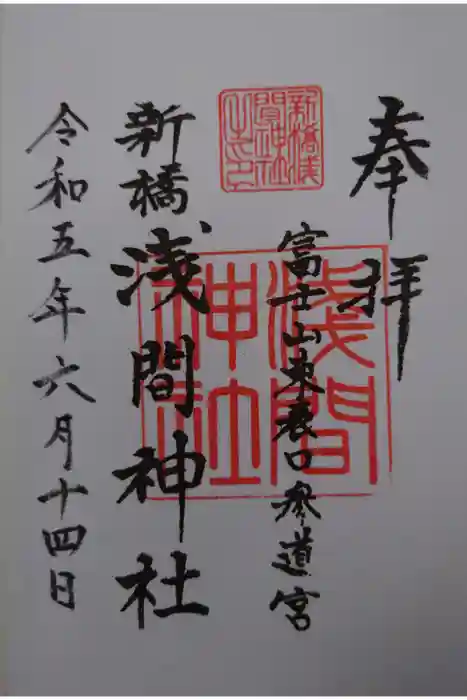 奉拝
富士山東表口参道宮
新橋浅間神社
令和五年六月十四日
浅間
神社
新橋浅
間神社
之印